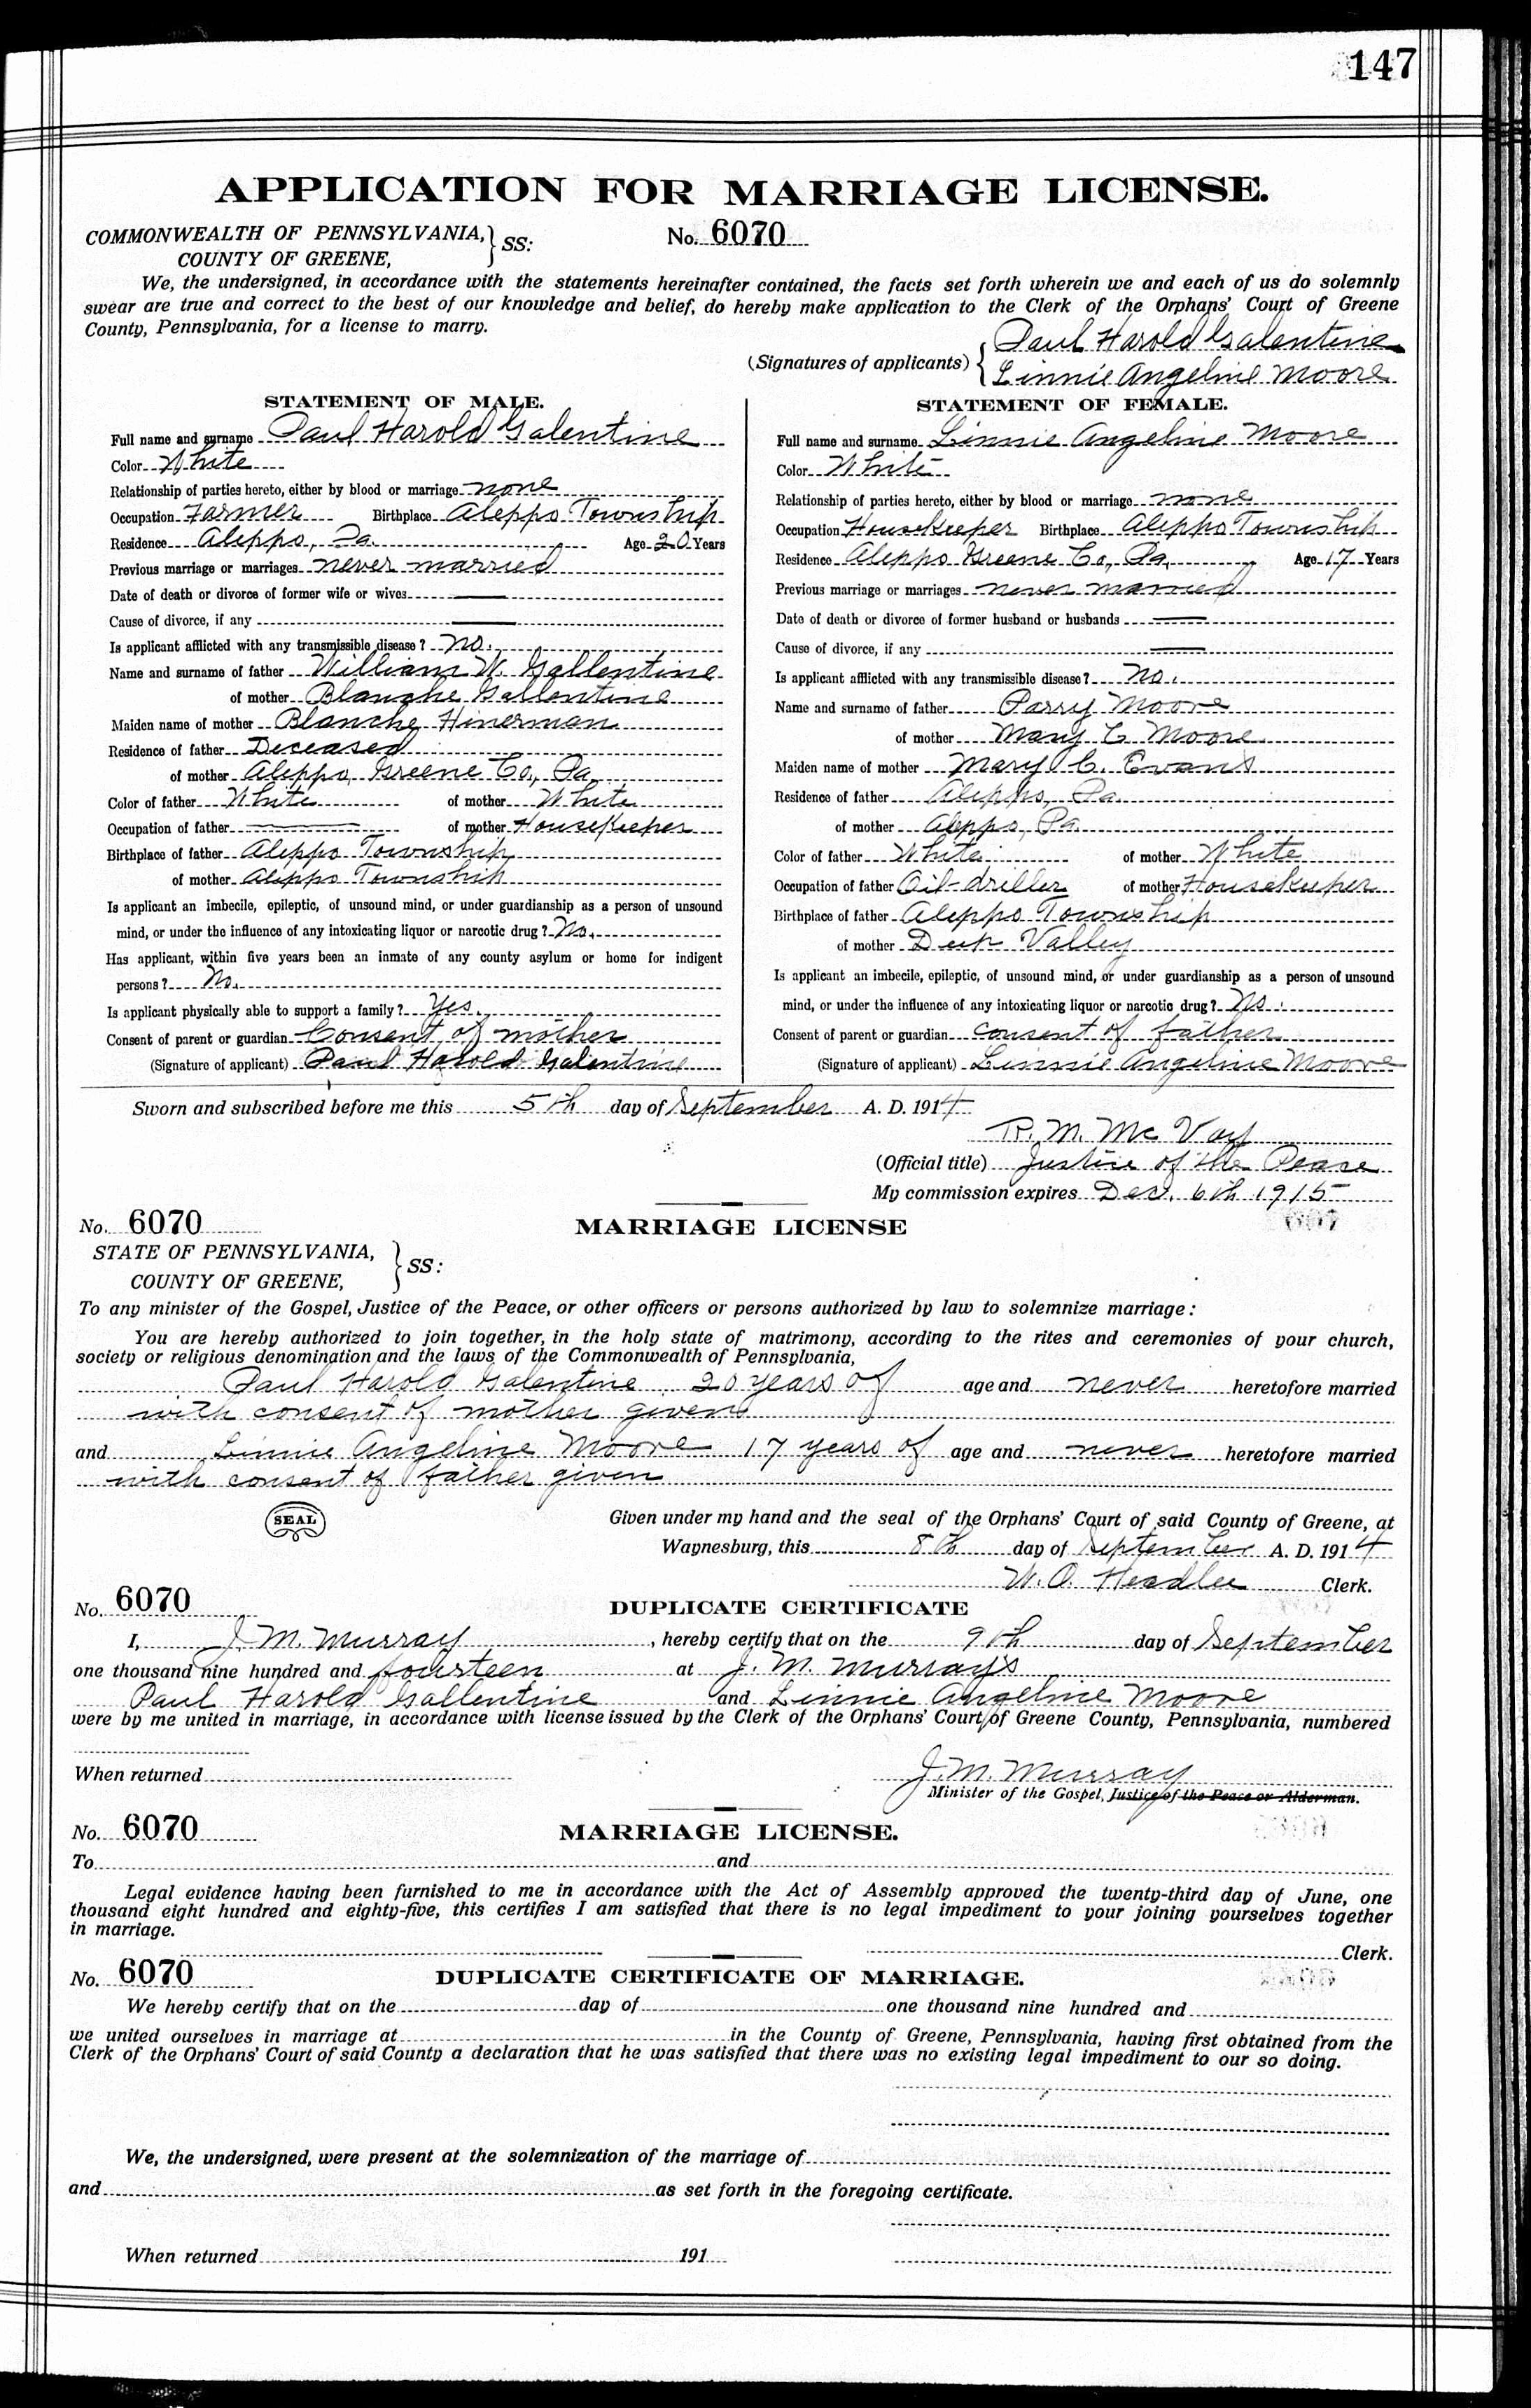 147
APPLICATION FOR MARRIAGE LICENSE.
COMMONWEALTH OF PENNSYLVANIA, } SS: No. 6070
COUNTY OF GREENE,
We, the undersigned, in accordance with the statements hereinafter contained, the facts set forth wherein we and each of us do solemnly
swear are true and correct to the best of our knowledge and belief, do hereby make application to the Clerk of the Orphans' Court of Greene
County, Pennsylvania, for a license to marry.
(Signatures of applicants) { Paul Harold Galentine
Linnie Angeline Moore
STATEMENT OF MALE.
Full name and surname Paul Harold Galentine
Color White
Relationship of parties hereto, either by blood or marriage none
Occupation Farmer Birthplace Aleppo Township
Residence Aleppo, Pa. Age 20 Years
Previous marriage or marriages never married
Date of death or divorce of former wife or wives
Cause of divorce, if any
Is applicant afflicted with any transmissible disease? no.
Name and surname of father William W. Gallentine
of mother Blanche Gallentine
Maiden name of mother Blanche Hinerman
Residence of father Deceased
of mother Aleppo, Greene Co., Pa.
Color of father White of mother White
Occupation of father of mother Housekeeper
Birthplace of father Aleppo Township
of mother Aleppo Township
Is applicant an imbecile, epileptic, of unsound mind, or under guardianship as a person of unsound
mind, or under the influence of any intoxicating liquor or narcotic drug? No.
Has applicant, within five years been an inmate of any county asylum or home for indigent
persons? No.
Is applicant physically able to support a family? Yes.
Consent of parent or guardian Consent of mother
(Signature of applicant) Paul Harold Galentine
STATEMENT OF FEMALE.
Full name and surname Linnie Angeline Moore
Color White
Relationship of parties hereto, either by blood or marriage none
Occupation Housekeeper Birthplace Aleppo Township
Residence Aleppo Greene Co., Pa. Age 17 Years
Previous marriage or marriages never married
Date of death or divorce of former husband or husbands
Cause of divorce, if any
Is applicant afflicted with any transmissible disease? no.
Name and surname of father Parry Moore
of mother Mary C Moore
Maiden name of mother Mary C. Evans
Residence of father Aleppo, Pa.
of mother Aleppo, Pa.
Color of father White of mother White
Occupation of father Oil-driller of mother Housekeeper
Birthplace of father Aleppo Township
of mother Deep Valley
Is applicant an imbecile, epileptic, of unsound mind, or under guardianship as a person of unsound
mind, or under the influence of any intoxicating liquor or narcotic drug? No.
Consent of parent or guardian consent of father
(Signature of applicant) Linnie Angeline Moore
Sworn and subscribed before me this 5th day of September A. D. 1914
R. M. Mc Vay
(Official title) Justice of the Peace
My commission expires Dec. 6th 1915
No. 6070 MARRIAGE LICENSE
STATE OF PENNSYLVANIA, } SS:
COUNTY OF GREENE,
To any minister of the Gospel, Justice of the Peace, or other officers or persons authorized by law to solemnize marriage:
You are hereby authorized to join together, in the holy state of matrimony, according to the rites and ceremonies of your church,
society or religious denomination and the laws of the Commonwealth of Pennsylvania,
Paul Harold Galentine 20 years of age and never heretofore married
with consent of mother given
and Linnie Angeline Moore 17 years of age and never heretofore married
with consent of father given
SEAL
Given under my hand and the seal of the Orphans' Court of said County of Greene, at
Waynesburg, this 8th day of September A. D. 1914
W. O. Headlee Clerk.
No. 6070 DUPLICATE CERTIFICATE
I, J. M. Murray, hereby certify that on the 9th day of September
one thousand nine hundred and fourteen at J. M. Murray's
Paul Harold Gallentine and Linnie Angeline Moore
were by me united in marriage, in accordance with license issued by the Clerk of the Orphans' Court of Greene County, Pennsylvania, numbered
When returned J. M. Murray
Minister of the Gospel, Justice of the Peace or Alderman.
No. 6070 MARRIAGE LICENSE.
To and
Legal evidence having been furnished to me in accordance with the Act of Assembly approved the twenty-third day of June, one
thousand eight hundred and eighty-five, this certifies I am satisfied that there is no legal impediment to your joining yourselves together
in marriage.
Clerk.
No. 6070 DUPLICATE CERTIFICATE OF MARRIAGE.
We hereby certify that on the day of one thousand nine hundred and
we united ourselves in marriage at in the County of Greene, Pennsylvania, having first obtained from the
Clerk of the Orphans' Court of said County a declaration that he was satisfied that there was no existing legal impediment to our so doing.
We, the undersigned, were present at the solemnization of the marriage of
and as set forth in the foregoing certificate.
When returned 191